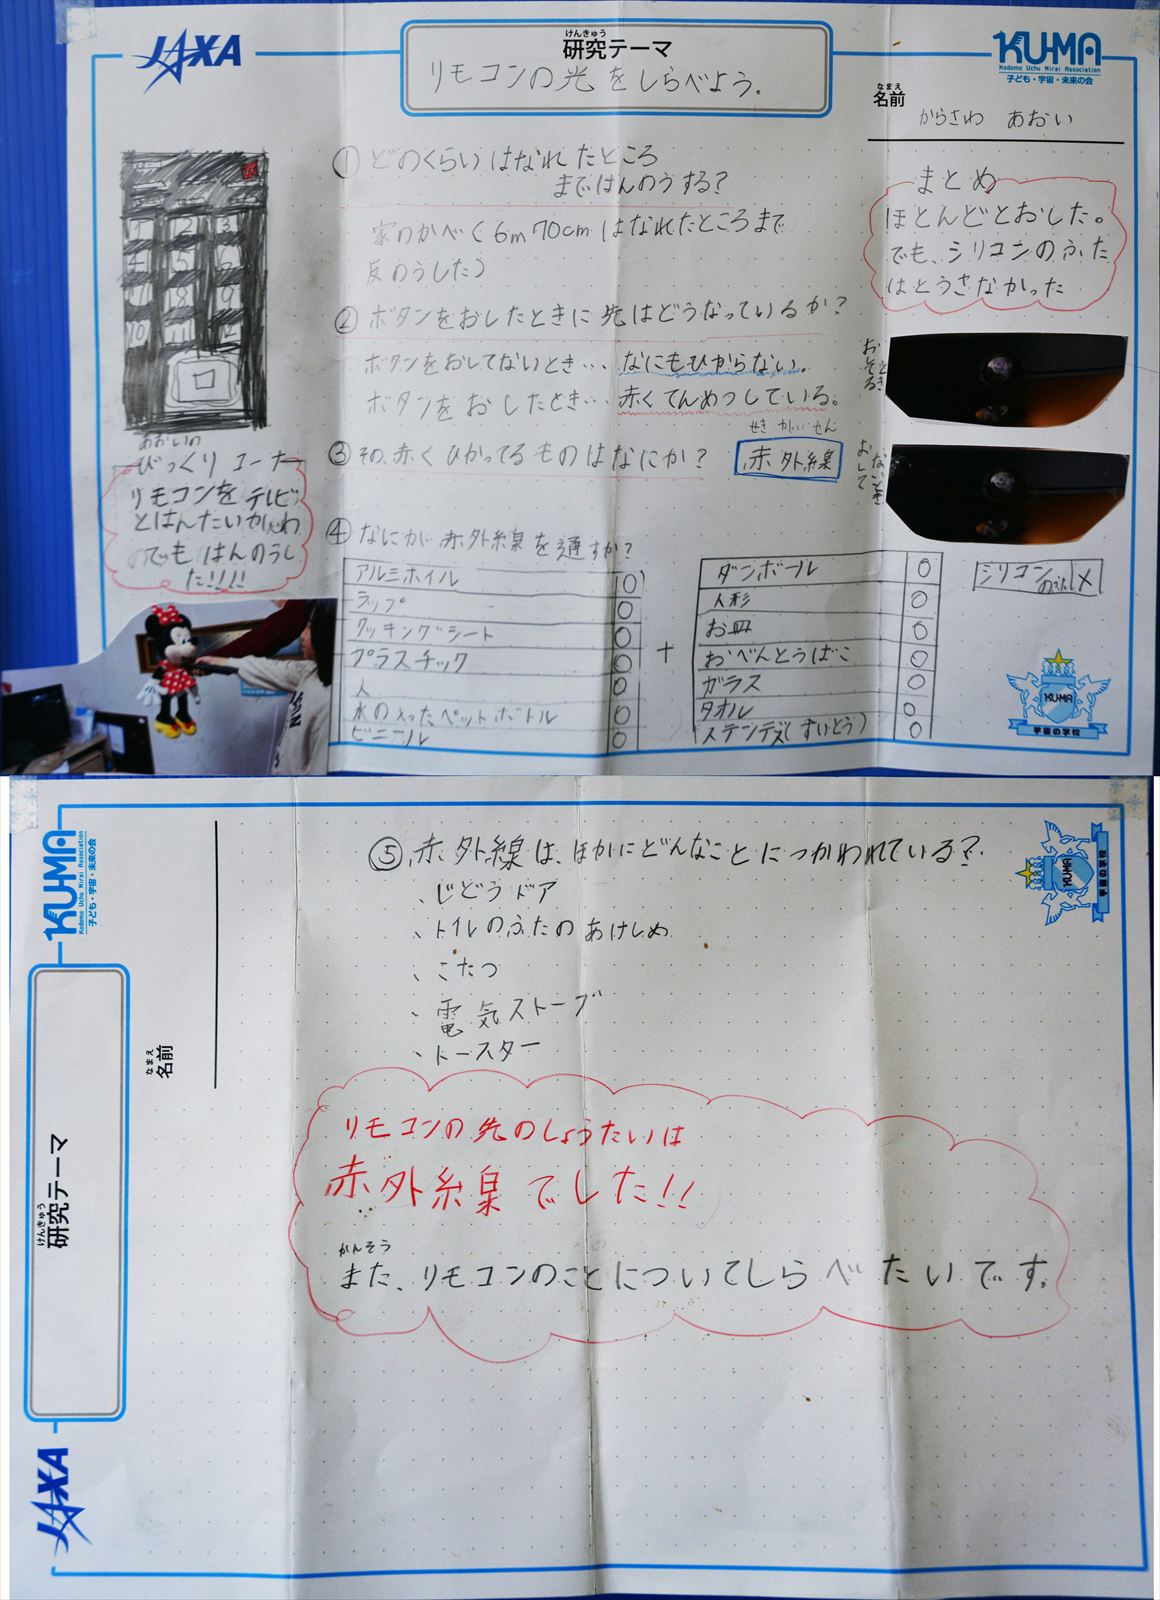 JAXA
けんきゅう
研究テーマ
リモコンの光をしらべよう。
KU-MA
Kodomo Uchu Mirai Association
子ども・宇宙・未来の会
なまえ
名前
からさわ あおい
1 2 3
4 5 6
7 8 9
10 11 12
あおいの
びっくりコーナー
リモコンをテレビ
とはんたいがわ
のでもはんのうし
た!!!!
①どのくらいはなれたところ
まではんのうする?
家のかべ(6m70cmはなれたところまで
反のうした)
②ボタンをおしたときに先はどうなっているか?
ボタンをおしてないとき…なにもひからない。
ボタンをおしたとき…赤くてんめつしている。
③その、赤くひかってるものはなにか?
せきがいせん
赤外線
④なにが赤外線を通すか?
アルミホイル 〇
ラップ 〇
クッキングシート 〇
プラスチック 〇
人 〇
水の入ったペットボトル 〇
ビニール 〇
+
ダンボール 〇
人形 〇
お皿 〇
おべんとうばこ 〇
ガラス 〇
タオル 〇
ステンデス(すいとう) 〇
シリコン ×
まとめ
ほとんどとおした。
でも、シリコンのふた
はとうさなかった
KU-MA
宇宙の学校
KU-MA
Kodomo Uchu Mirai Association
子ども・宇宙・未来の会
なまえ
名前
けんきゅう
研究テーマ
JAXA
⑤赤外線は、ほかにどんなことにつかわれている?
、じどうドア
、トイレのふたのあけしめ
、こたつ
、電気ストーブ
、トースター
リモコンの先のしょうたいは
赤外線でした!!
かんそう
また、リモコンのことについてしらべたいです。
KU-MA
宇宙の学校